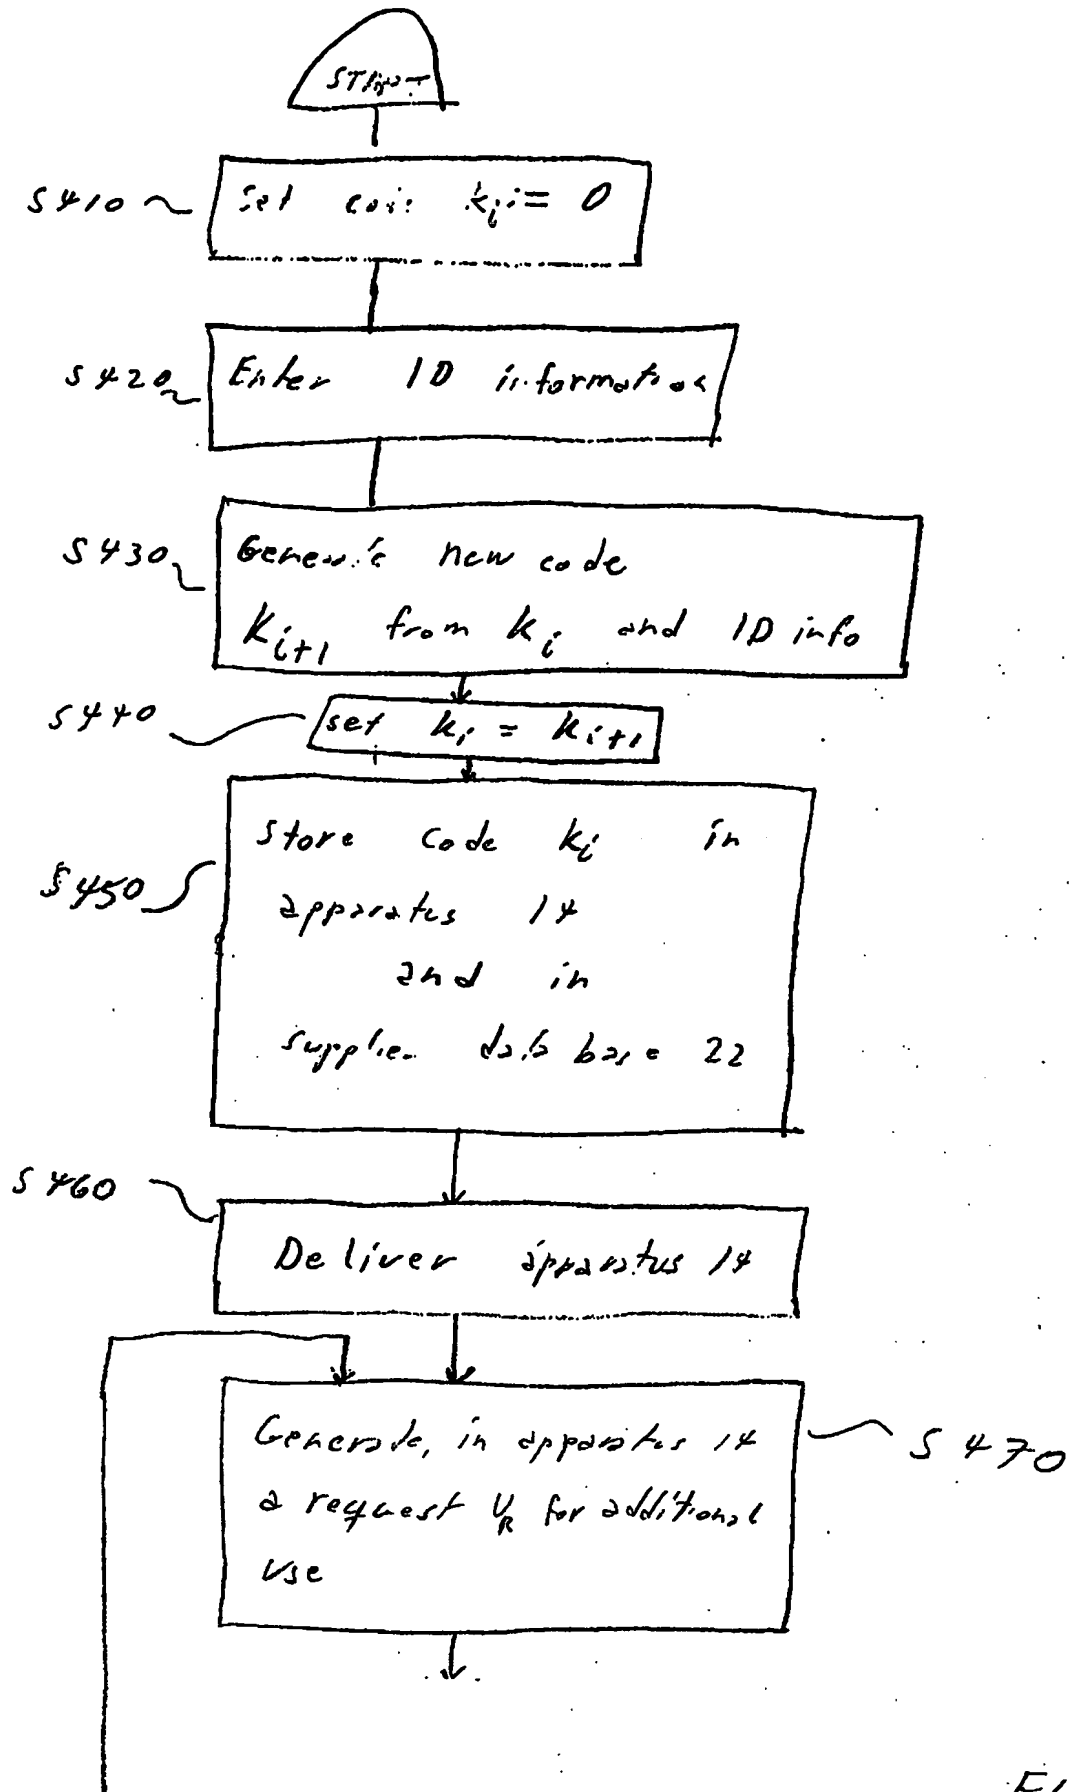 START
S410
Set code ki := 0
S420
Enter ID information
S430
Generate new code
Ki+1 from ki and ID info
S440
set ki = ki+1
S450
Store code ki in
apparatus 14
and in
supplier data base 22
S460
Deliver apparatus 14
S470
Generate, in apparatus 14
a request UR for additional
use